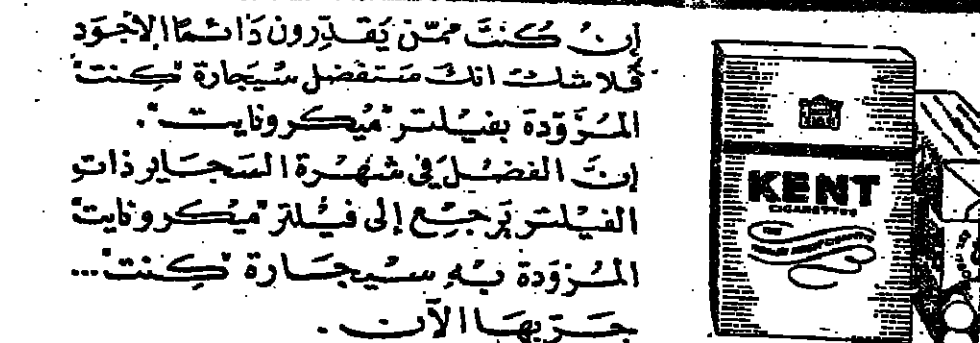 إن كنت ممّن يَقدِّرون دَائمًا الأجوَد
فلا شك انك ستفضل سيجارة "كنت"
المزَوّدة بفيلتر "ميكرونايت".
إنّ الفضل في شهرة السجاير ذات
الفيلتر يَرجع إلى فيلتر "ميكرونايت"
المزودة به سيجارة "كنت"...
جرّبها الآن.
KENT
CIGARETTES